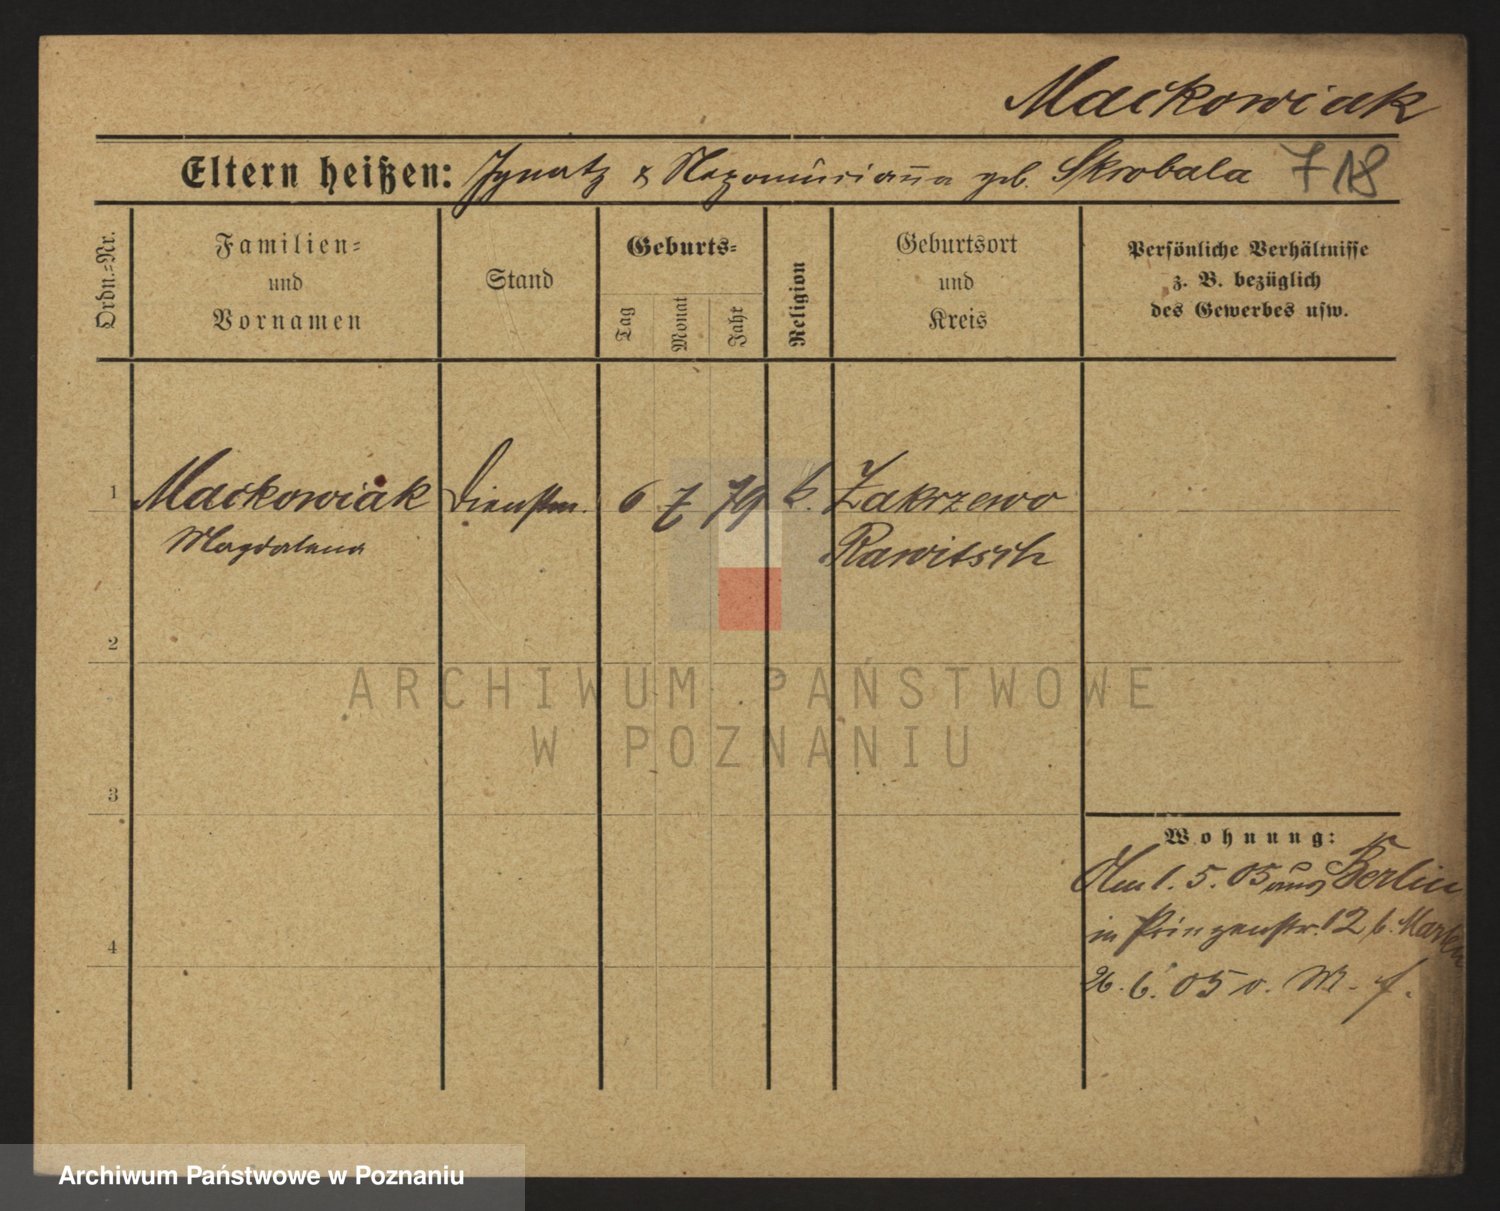 Maćkowiak
Eltern heißen: Ignatz & Nepomůcianna geb. Skrobala 718
Ordn.-Nr.
Familien-
und
Vornamen
Stand
Geburts-
Tag
Monat
Jahr
Religion
Geburtsort
und
Kreis
Persönliche Verhältnisse
z. B. bezüglich
des Gewerbes usw.
1 Maćkowiak Dienstm. 6 7 79 k. Zakrzewo
Magdalena Rawitsch
2
3
4
Wohnung:
Am 1. 5. 05 aus Berlin
in Prinzenstr. 12 b. Marten
26. 6. 05 v. W. f.
ARCHIWUM PAŃSTWOWE
W POZNANIU
Archiwum Państwowe w Poznaniu